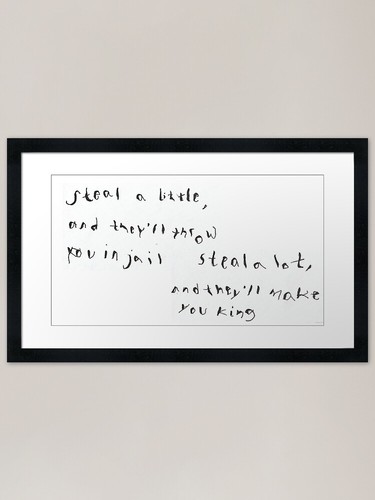 steal a little,
and they'll throw
you in jail
steal a lot,
and they'll make
you king